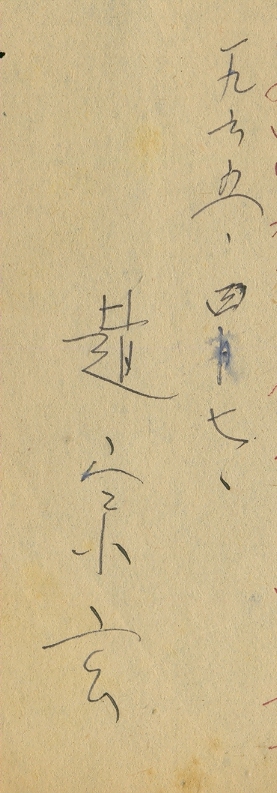 一九六五、四月七、
趙宗玄